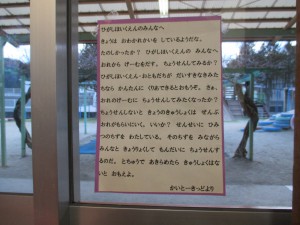 ひがしほいくえんのみんなへ
きょうは おわかれかいを しているようだな。
たのしかったか？ ひがしほいくえんの みんなへ
おれから げーむをだす。 ちょうせんしてみるか？
ひがしほいくえん・おともだちが だいすきなきみた
ちなら かんたんに くりあできるとおもうぞ。 さぁ、
おれのげーむに ちょうせんしてみたくなったか？
ちょうせんしないと きょうのきゅうしょくは ぜんぶ
おれがもらいにいく。 いいか？ せんせいに ひみ
つのちずを わたしている。 そのちずを みながら
みんなと きょうりょくして もんだいに ちょうせんす
るのだ。 とちゅうで あきらめたら きゅうしょくはな
いと おもえよ。
かいとーきっどより